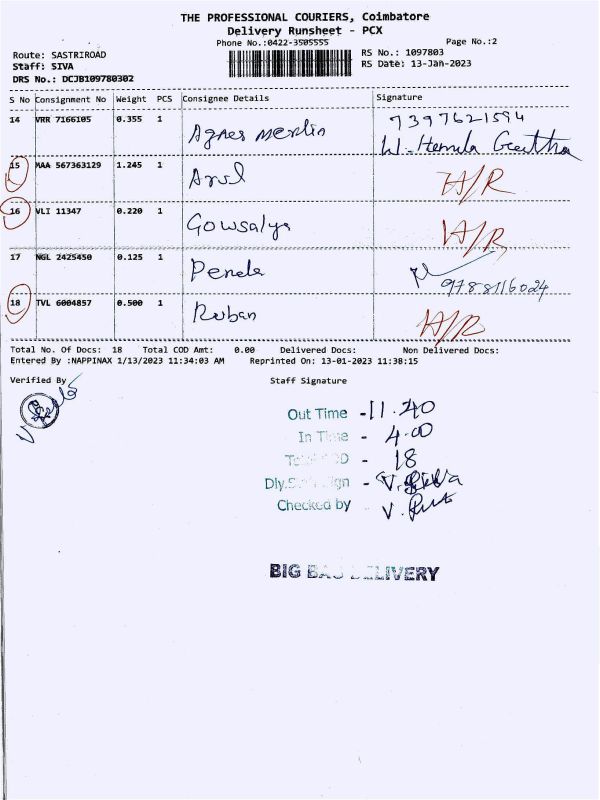 THE PROFESSIONAL COURIERS, Coimbatore
Delivery Runsheet - PCX
Phone No.:0422-3505555 Page No.:2
Route: SASTRIROAD RS No.: 1097803
Staff: SIVA RS Date: 13-Jan-2023
DRS No.: DCJB109780302
S No Consignment No Weight PCS Consignee Details Signature
14 VRR 7166105 0.355 1 Agnes Merlin 7397621594
W. Hemula Geetha
15 MAA 567363129 1.245 1 Arul A/R
16 VLI 11347 0.220 1 Gowsalya A/R
17 NGL 2425450 0.125 1 Penela 9788116024
18 TVL 6004857 0.500 1 Ruban A/R
Total No. Of Docs: 18 Total COD Amt: 0.00 Delivered Docs: Non Delivered Docs:
Entered By :NAPPINAX 1/13/2023 11:34:03 AM Reprinted On: 13-01-2023 11:38:15
Verified By Staff Signature
Out Time - 11.40
In Time - 4.00
Total COD - 18
Dly.S Sign - V.
Checked by - V.
BIG BAG DELIVERY